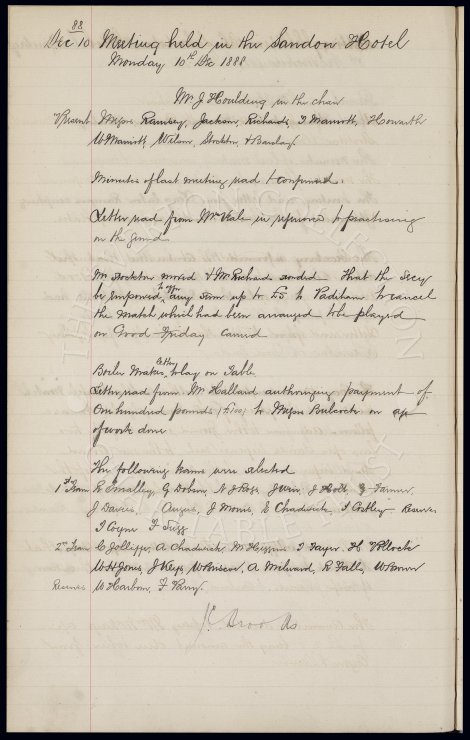 88
Dec 10 Meeting held in the Sandon Hotel
Monday 10th Dec 1888
Mr J Houlding in the chair
Present Messrs Ramsey, Jackson, Richards, T Marriott, Howarth
W Marriott, Wilson, Stockton, & Barclay.
Minutes of last meeting read & confirmed.
Letter read from Mr Vale in reference to practising
on the ground
Mr Stockton moved & Mr Richards seconded That the Secy
be empowered to offer any sum up to £5 to Padiham to cancel
the match which had been arranged to be played
on Good Friday carried
Boiler Makers letter to lay on Table
Letter read from Mr Hallard authorizing payment of
One hundred pounds (£100) to Messrs Bulcock on a/c
of work done
The following teams were selected
1st Team R Smalley, G Dobson, N J Ross, J Weir, J Holt, G Farmer
J Davies, Angus, J Morris, E Chadwick, Reserves
T Coyne
2nd Team C Jolliffe, A Chadwick, M Higgins T Fayer. H Pollock
W H Jones, J Keys W Briscoe, A Milward, R Falls, W Brown
Reserves W Harbour, F Parry.